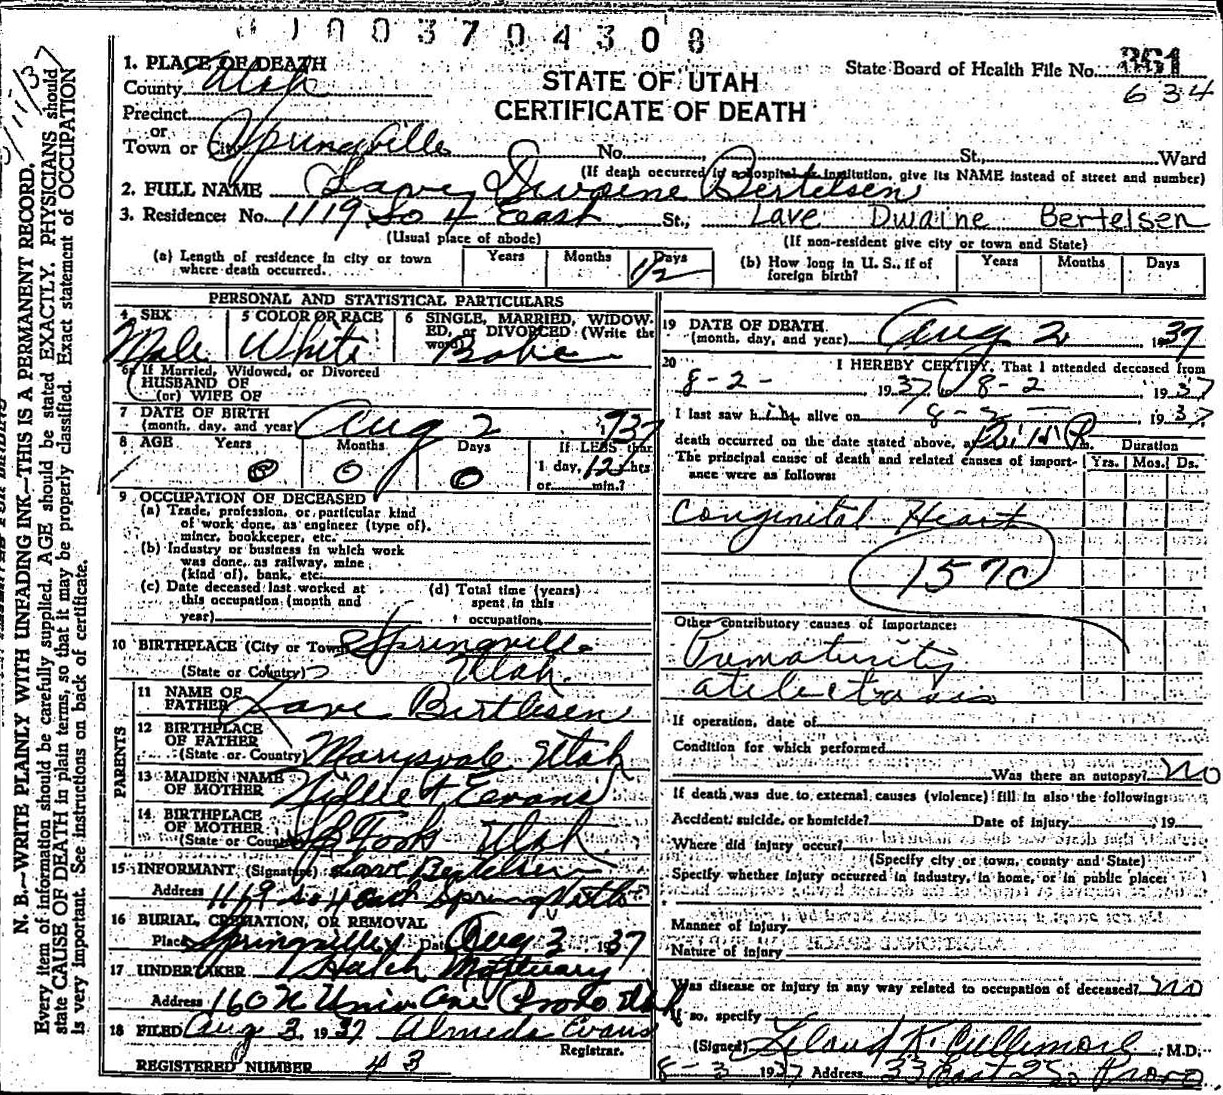 01003704308
STATE OF UTAH
CERTIFICATE OF DEATH
State Board of Health File No. 361
634
1. PLACE OF DEATH
County Utah
Precinct
or
Town or City Springville No. St., Ward
(If death occurred in a hospital or institution, give its NAME instead of street and number)
2. FULL NAME Lave Dwaine Bertelsen
3. Residence: No. 1119 So 4 East St., Lave Dwaine Bertelsen
(Usual place of abode) (If non-resident give city or town and State)
(a) Length of residence in city or town where death occurred. Years Months Days 1/2
(b) How long in U. S., if of foreign birth? Years Months Days
PERSONAL AND STATISTICAL PARTICULARS
4 SEX Male
5 COLOR OR RACE White
6 SINGLE, MARRIED, WIDOWED, or DIVORCED (Write the word) Babe
6a If Married, Widowed, or Divorced
HUSBAND OF
(or) WIFE OF
7 DATE OF BIRTH
(month, day, and year) Aug 2 1937
8 AGE Years 0 Months 0 Days 0 If LESS than
1 day, 12 hrs
or min.?
9 OCCUPATION OF DECEASED
(a) Trade, profession, or particular kind
of work done, as engineer (type of).
miner, bookkeeper, etc.
(b) Industry or business in which work
was done, as railway, mine
(kind of), bank, etc.
(c) Date deceased last worked at
this occupation (month and
year)
(d) Total time (years)
spent in this
occupation
10 BIRTHPLACE (City or Town) Springville
(State or Country) Utah.
PARENTS
11 NAME OF
FATHER Lave Bertlesen
12 BIRTHPLACE
OF FATHER
(State or Country) Marysvale Utah
13 MAIDEN NAME
OF MOTHER Evans
14 BIRTHPLACE
OF MOTHER
(State or Country) Utah
15 INFORMANT (Signature) Lave Bertelsen
Address 1119 So 4 East Springville
16 BURIAL, CREMATION, OR REMOVAL
Place Springville Date Aug 3 1937
17 UNDERTAKER Hatch Mortuary
Address 160 N Univ Ave Provo Utah
18 FILED Aug 3, 1937 Almeda Evans
Registrar.
REGISTERED NUMBER 43
19 DATE OF DEATH
(month, day, and year) Aug 2 1937
20 I HEREBY CERTIFY, That I attended deceased from
8-2- 1937, to 8-2, 1937
I last saw him alive on 8-2-, 1937
death occurred on the date stated above, at m. Duration
The principal cause of death and related causes of import- Yrs. Mos. Ds.
ance were as follows:
Conginital Heart
157c
Other contributory causes of importance:
Prematurity
atelectasis
If operation, date of
Condition for which performed
Was there an autopsy? no
If death was due to external causes (violence) fill in also the following:
Accident, suicide, or homicide? Date of injury , 19
Where did injury occur?
(Specify city or town, county and State)
Specify whether injury occurred in industry, in home, or in public place:
Manner of Injury
Nature of injury
Was disease or injury in any way related to occupation of deceased? no
If so, specify
(Signed) Leland K. Cullimore, M.D.
8-3 1937 Address 33 East 2 So Provo
N. B.—WRITE PLAINLY WITH UNFADING INK—THIS IS A PERMANENT RECORD.
Every item of information should be carefully supplied. AGE should be stated EXACTLY. PHYSICIANS should
state CAUSE OF DEATH in plain terms, so that it may be properly classified. Exact statement of OCCUPATION
is very important. See instructions on back of certificate.